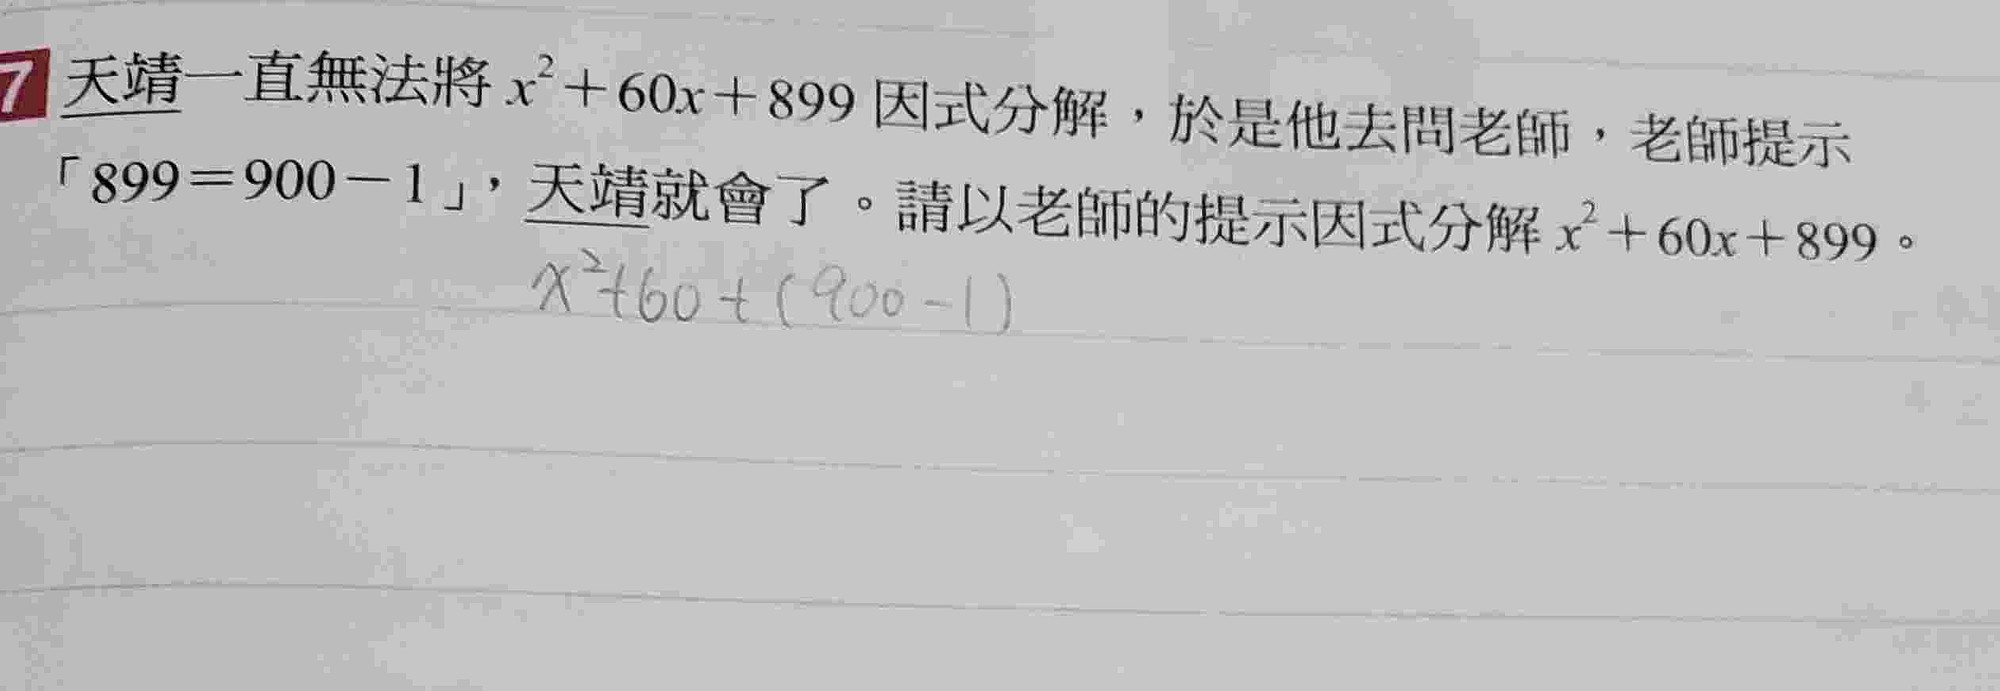 7 天靖一直無法將 x²+60x+899 因式分解，於是他去問老師，老師提示
「899=900-1」，天靖就會了。請以老師的提示因式分解 x²+60x+899。
x²+60+(900-1)